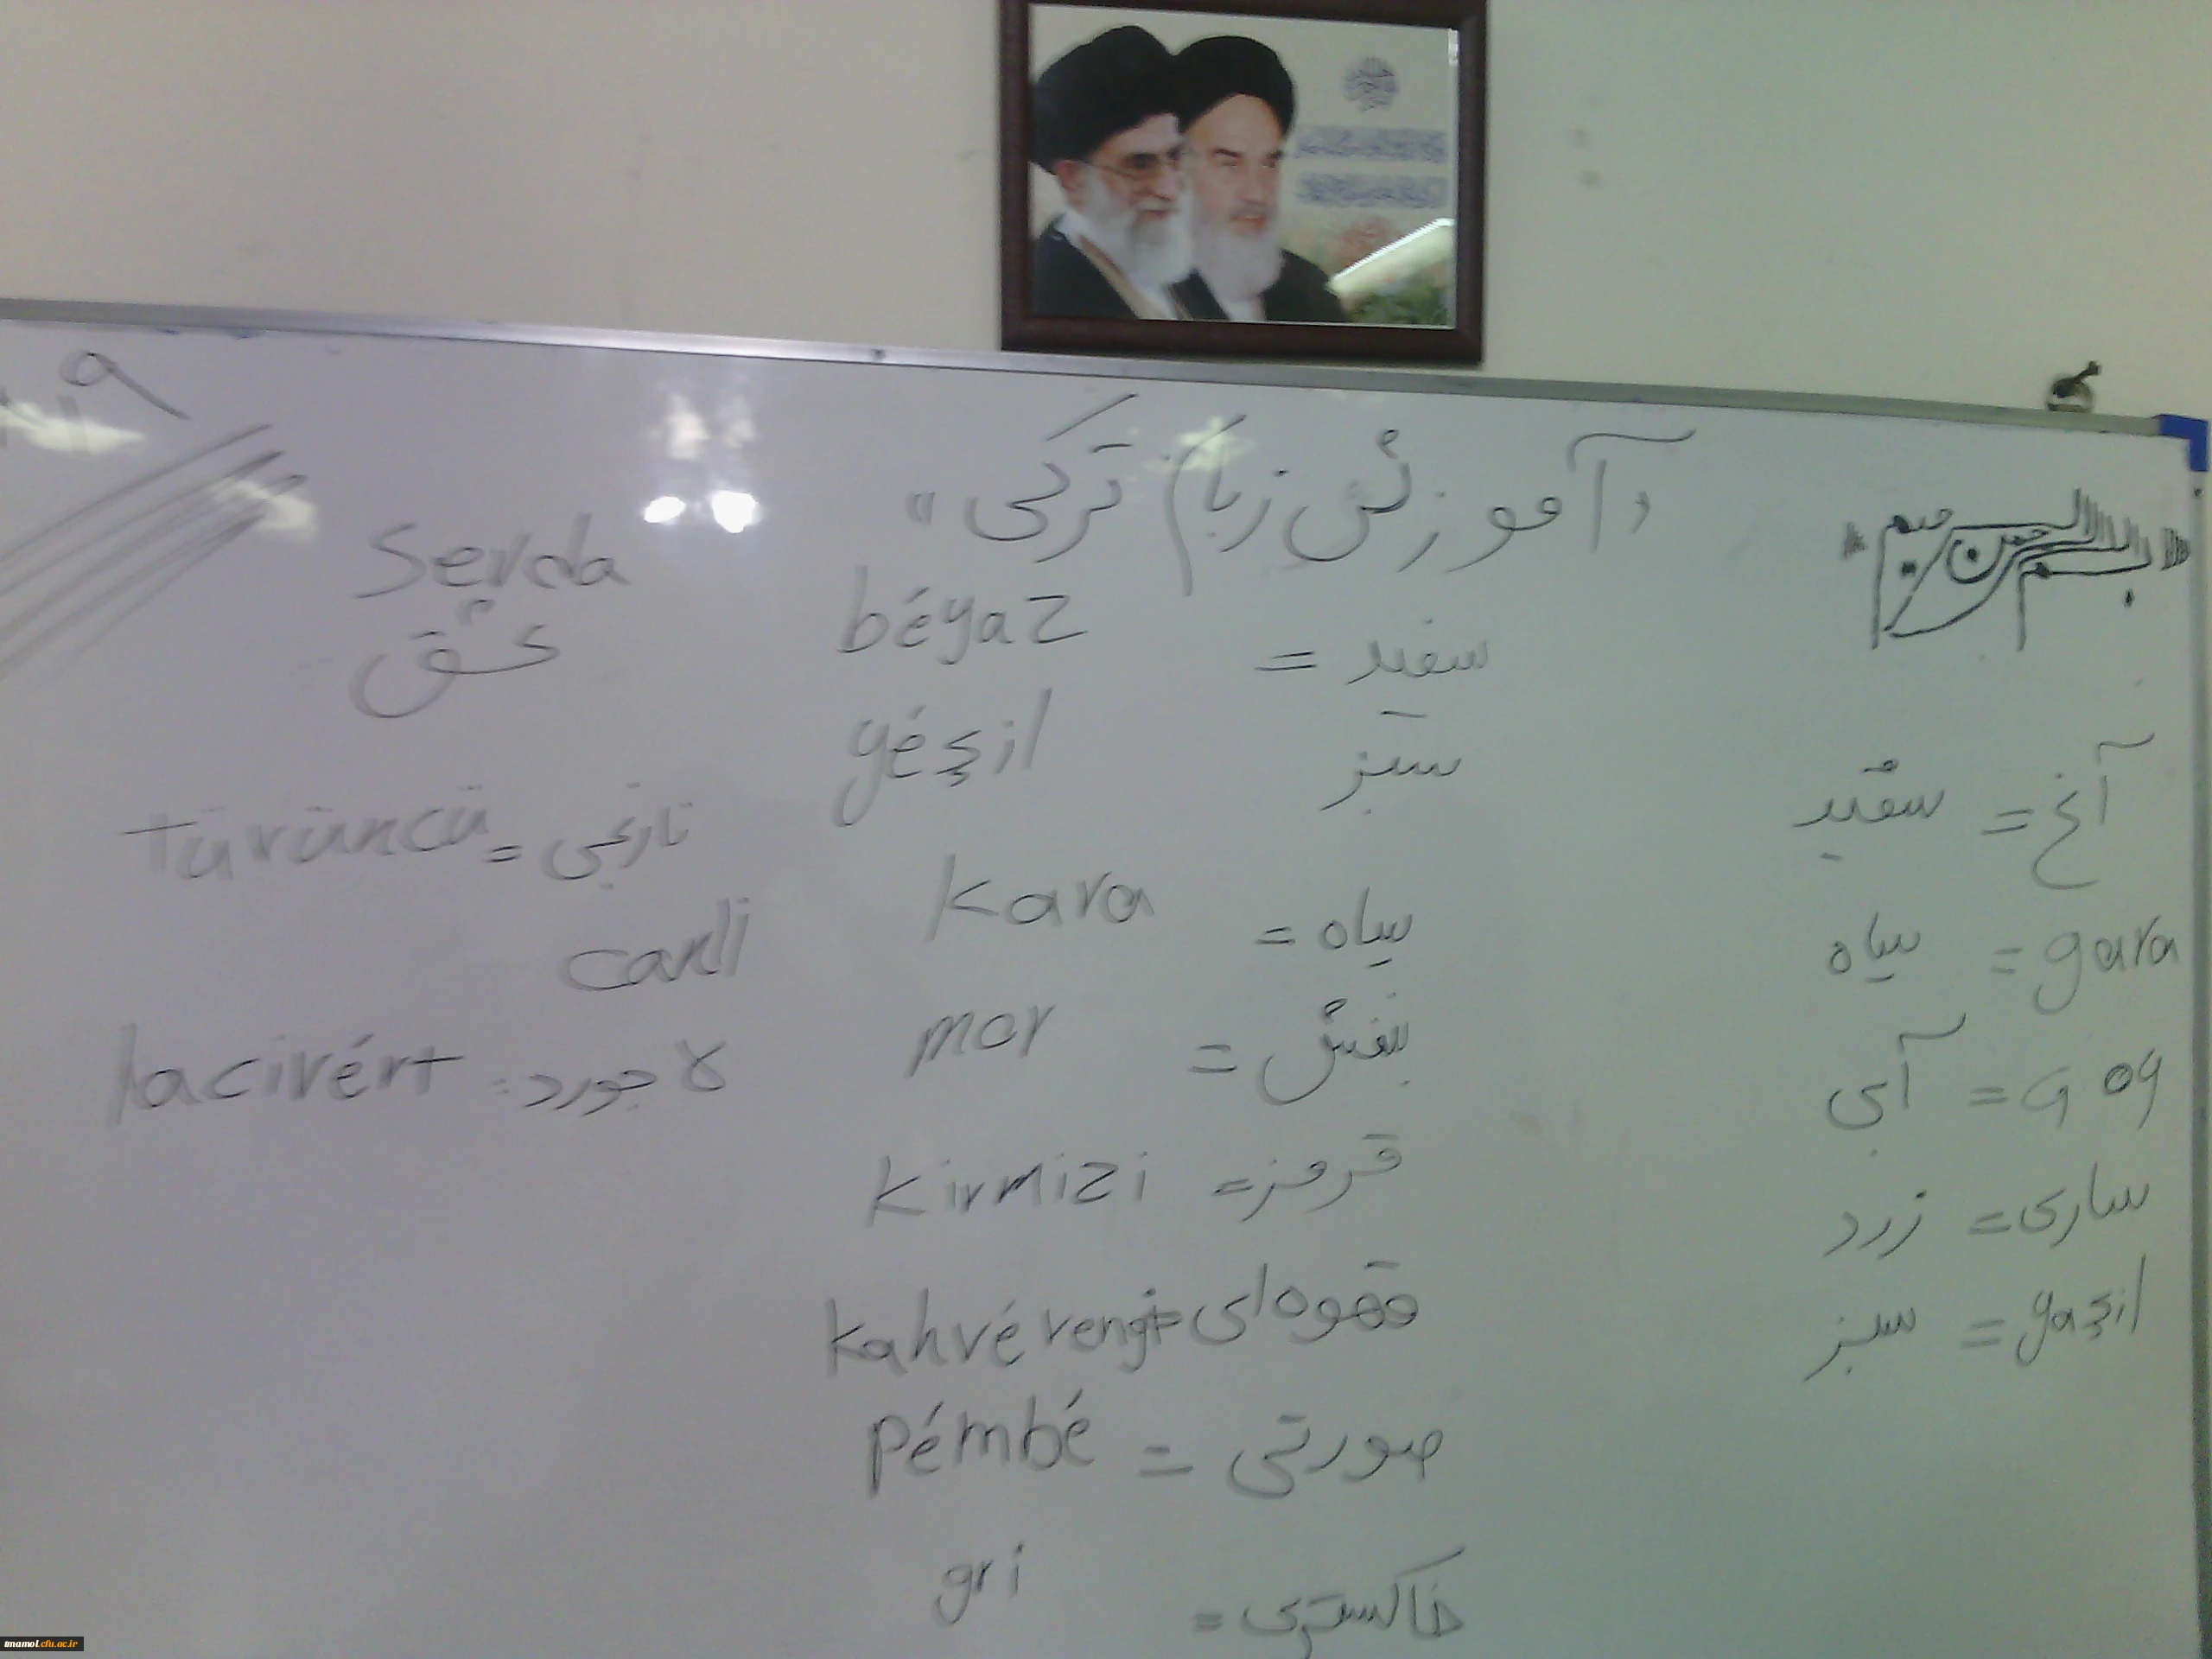 بسم الله الرحمن الرحیم
«آموزش زبان ترکی»
آغ = سفید
gara = سیاه
Goy = آبی
ساری = زرد
yaşil = سبز
سفید = béyaz
سبز yéşil
سیاه = kara
بنفش = mor
قرمز = kirmizi
قهوه‌ای = kahvé rengi
صورتی = pémbé
خاکستری = gri
Sevda
عشق
نارنجی = türüncü
canli
لاجورد = lacivért
tmamol.cfu.ac.ir